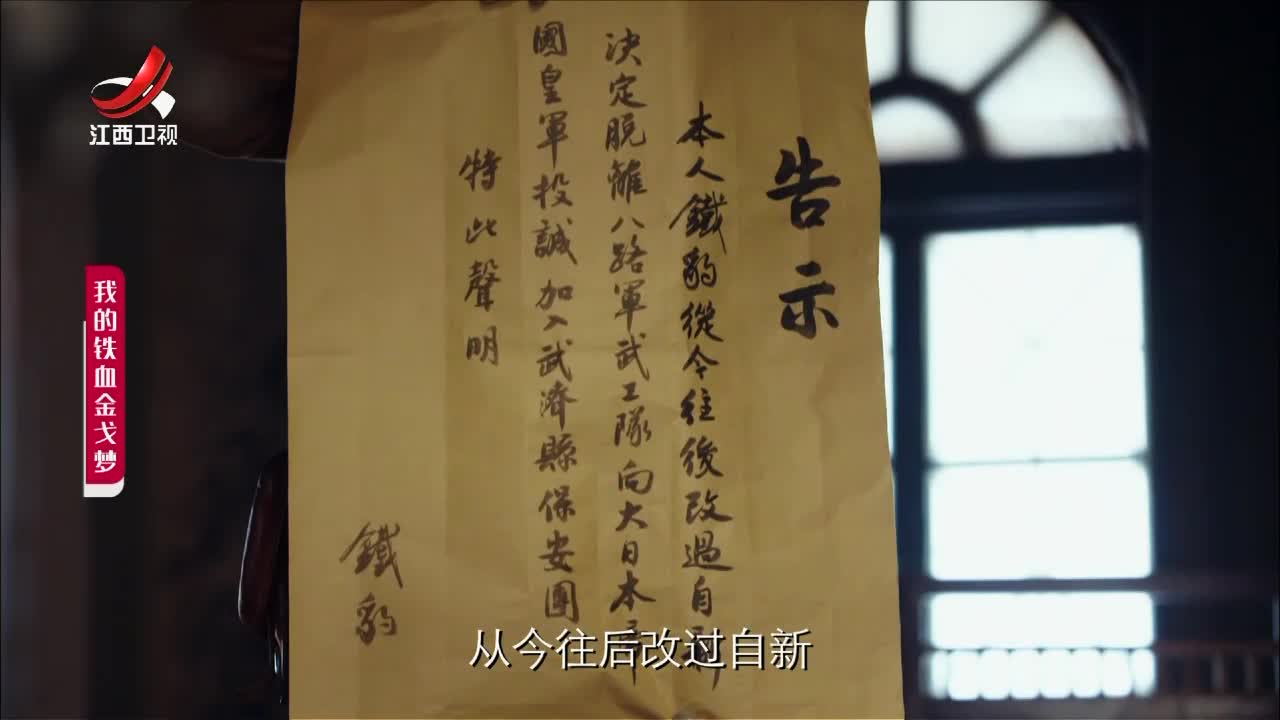 江西卫视
我的铁血金戈梦
告示
本人鐵豹從今往後改過自新
決定脫離八路軍武工隊向大日本帝
國皇軍投誠加入武濟縣保安團
特此聲明
鐵豹
从今往后改过自新